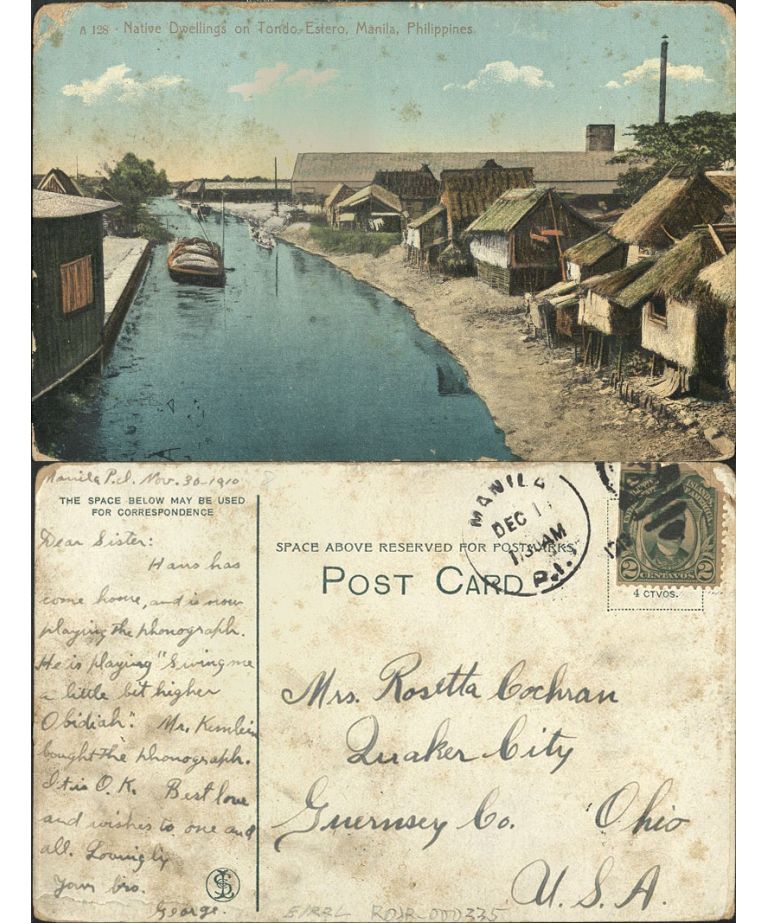 A 128 - Native Dwellings on Tondo Estero, Manila, Philippines.
Manila P.I. Nov. 30-1910
THE SPACE BELOW MAY BE USED
FOR CORRESPONDENCE
Dear Sister:
Hans has
come home, and is now
playing the phonograph.
He is playing "Swing me
a little bit higher
Obidiah". Mr.
bought the phonograph.
It is O.K. Best love
and wishes to one and
all. Lovingly
Your bro.
George.
MANILA
DEC 1
11 30 AM
P.I.
SPACE ABOVE RESERVED FOR POSTMARKS
POST CARD
2 CENTAVOS 2
4 CTVOS.
Mrs. Rosetta Cochran
Quaker City
Guernsey Co. Ohio
U.S.A.
ROJR-000335